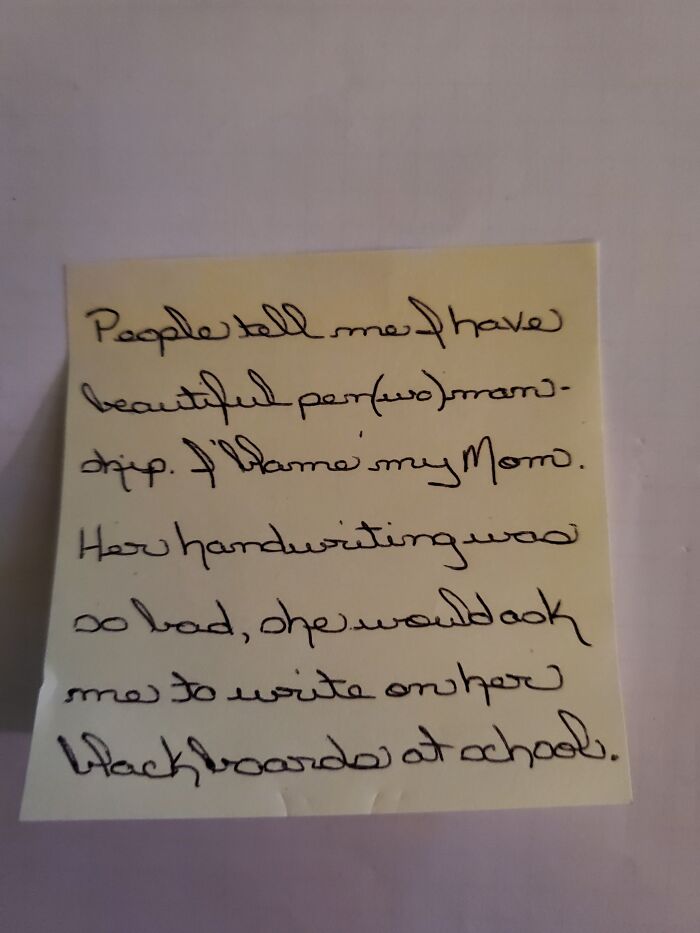 People tell me I have
beautiful pen(wo)man-
ship. I 'blame' my Mom.
Her handwriting was
so bad, she would ask
me to write on her
blackboards at school.